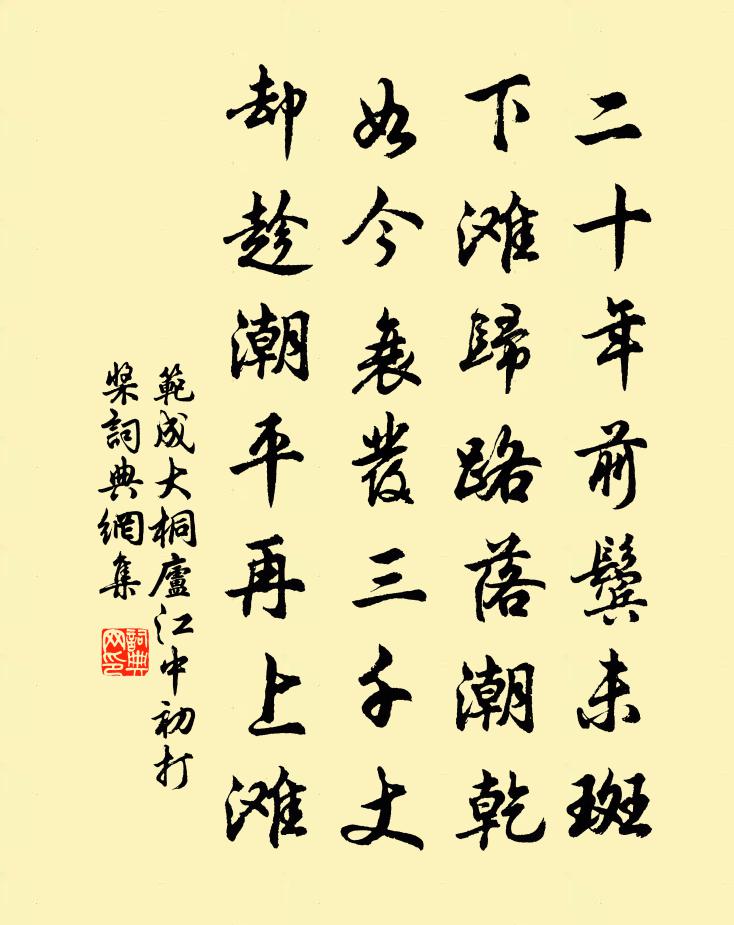 二十年前鬓未斑
下滩歸路落潮乾
如今衰發三千丈
却趁潮平再上滩
範成大桐廬江中初打
槳詞典網集
詞典网印